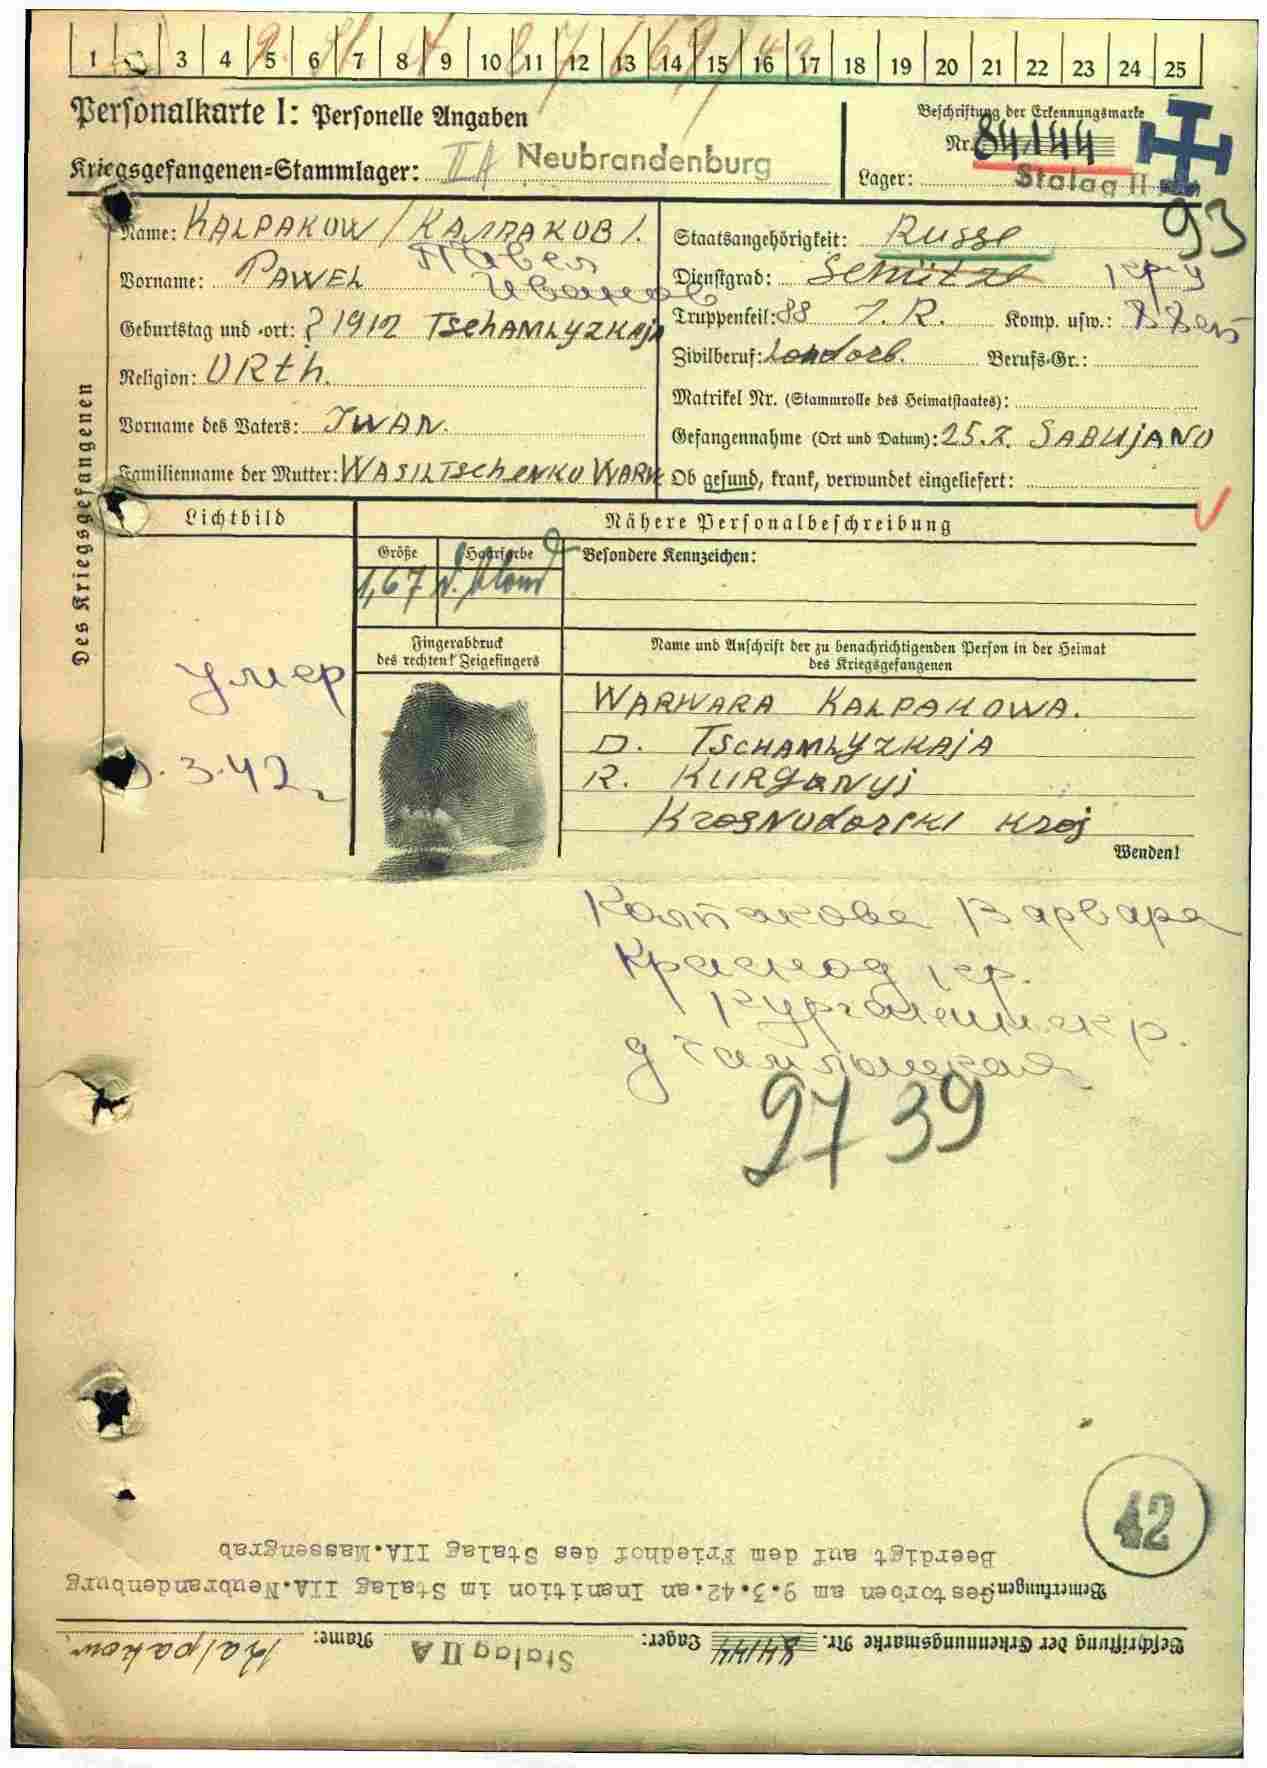 1 2 3 4 5 6 7 8 9 10 11 12 13 14 15 16 17 18 19 20 21 22 23 24 25
Personalkarte I: Personelle Angaben
Kriegsgefangenen-Stammlager: II A Neubrandenburg
Beschriftung der Erkennungsmarke
Nr. 84144
Lager: Stalag II
93
Des Kriegsgefangenen
Name: KALPAKOW / КАЛПАКОВ /.
Павел
Vorname: PAWEL
Иванов
Geburtstag und -ort: ? 1912 TSCHAMLYZKAJA
Religion: ORTh.
Vorname des Vaters: IWAN.
Familienname der Mutter: WASILTSCHENKO WARW
Staatsangehörigkeit: Russe
Dienstgrad: Schütze
Truppenteil: 88 J. R. Komp. usw.:
Zivilberuf: Landarb. Berufs-Gr.:
Matrikel Nr. (Stammrolle des Heimatstaates):
Gefangennahme (Ort und Datum): 25.7. SABUJANO
Ob gesund, krank, verwundet eingeliefert:
Lichtbild
Nähere Personalbeschreibung
Größe Haarfarbe Besondere Kennzeichen:
1,67 d. blond
Fingerabdruck
des rechten! Zeigefingers
Name und Anschrift der zu benachrichtigenden Person in der Heimat
des Kriegsgefangenen
умер
9.3.42г
WARWARA KALPAKOWA.
D. TSCHAMLYZKAJA
R. KURGANYI
Krasnodarski kraj
Wenden!
Колпакова Варвара
Краснод кр.
Курганинск р.
д Чамлыцкая
97 39
42
Beschriftung der Erkennungsmarke Nr. 84144 Lager: Stalag II A Name: Kalpakow
Bemerkungen: Gestorben am 9.3.42.an Inanition im Stalag IIA.Neubrandenburg
Beerdigt auf dem Friedhof des Stalag IIA.Massengrab